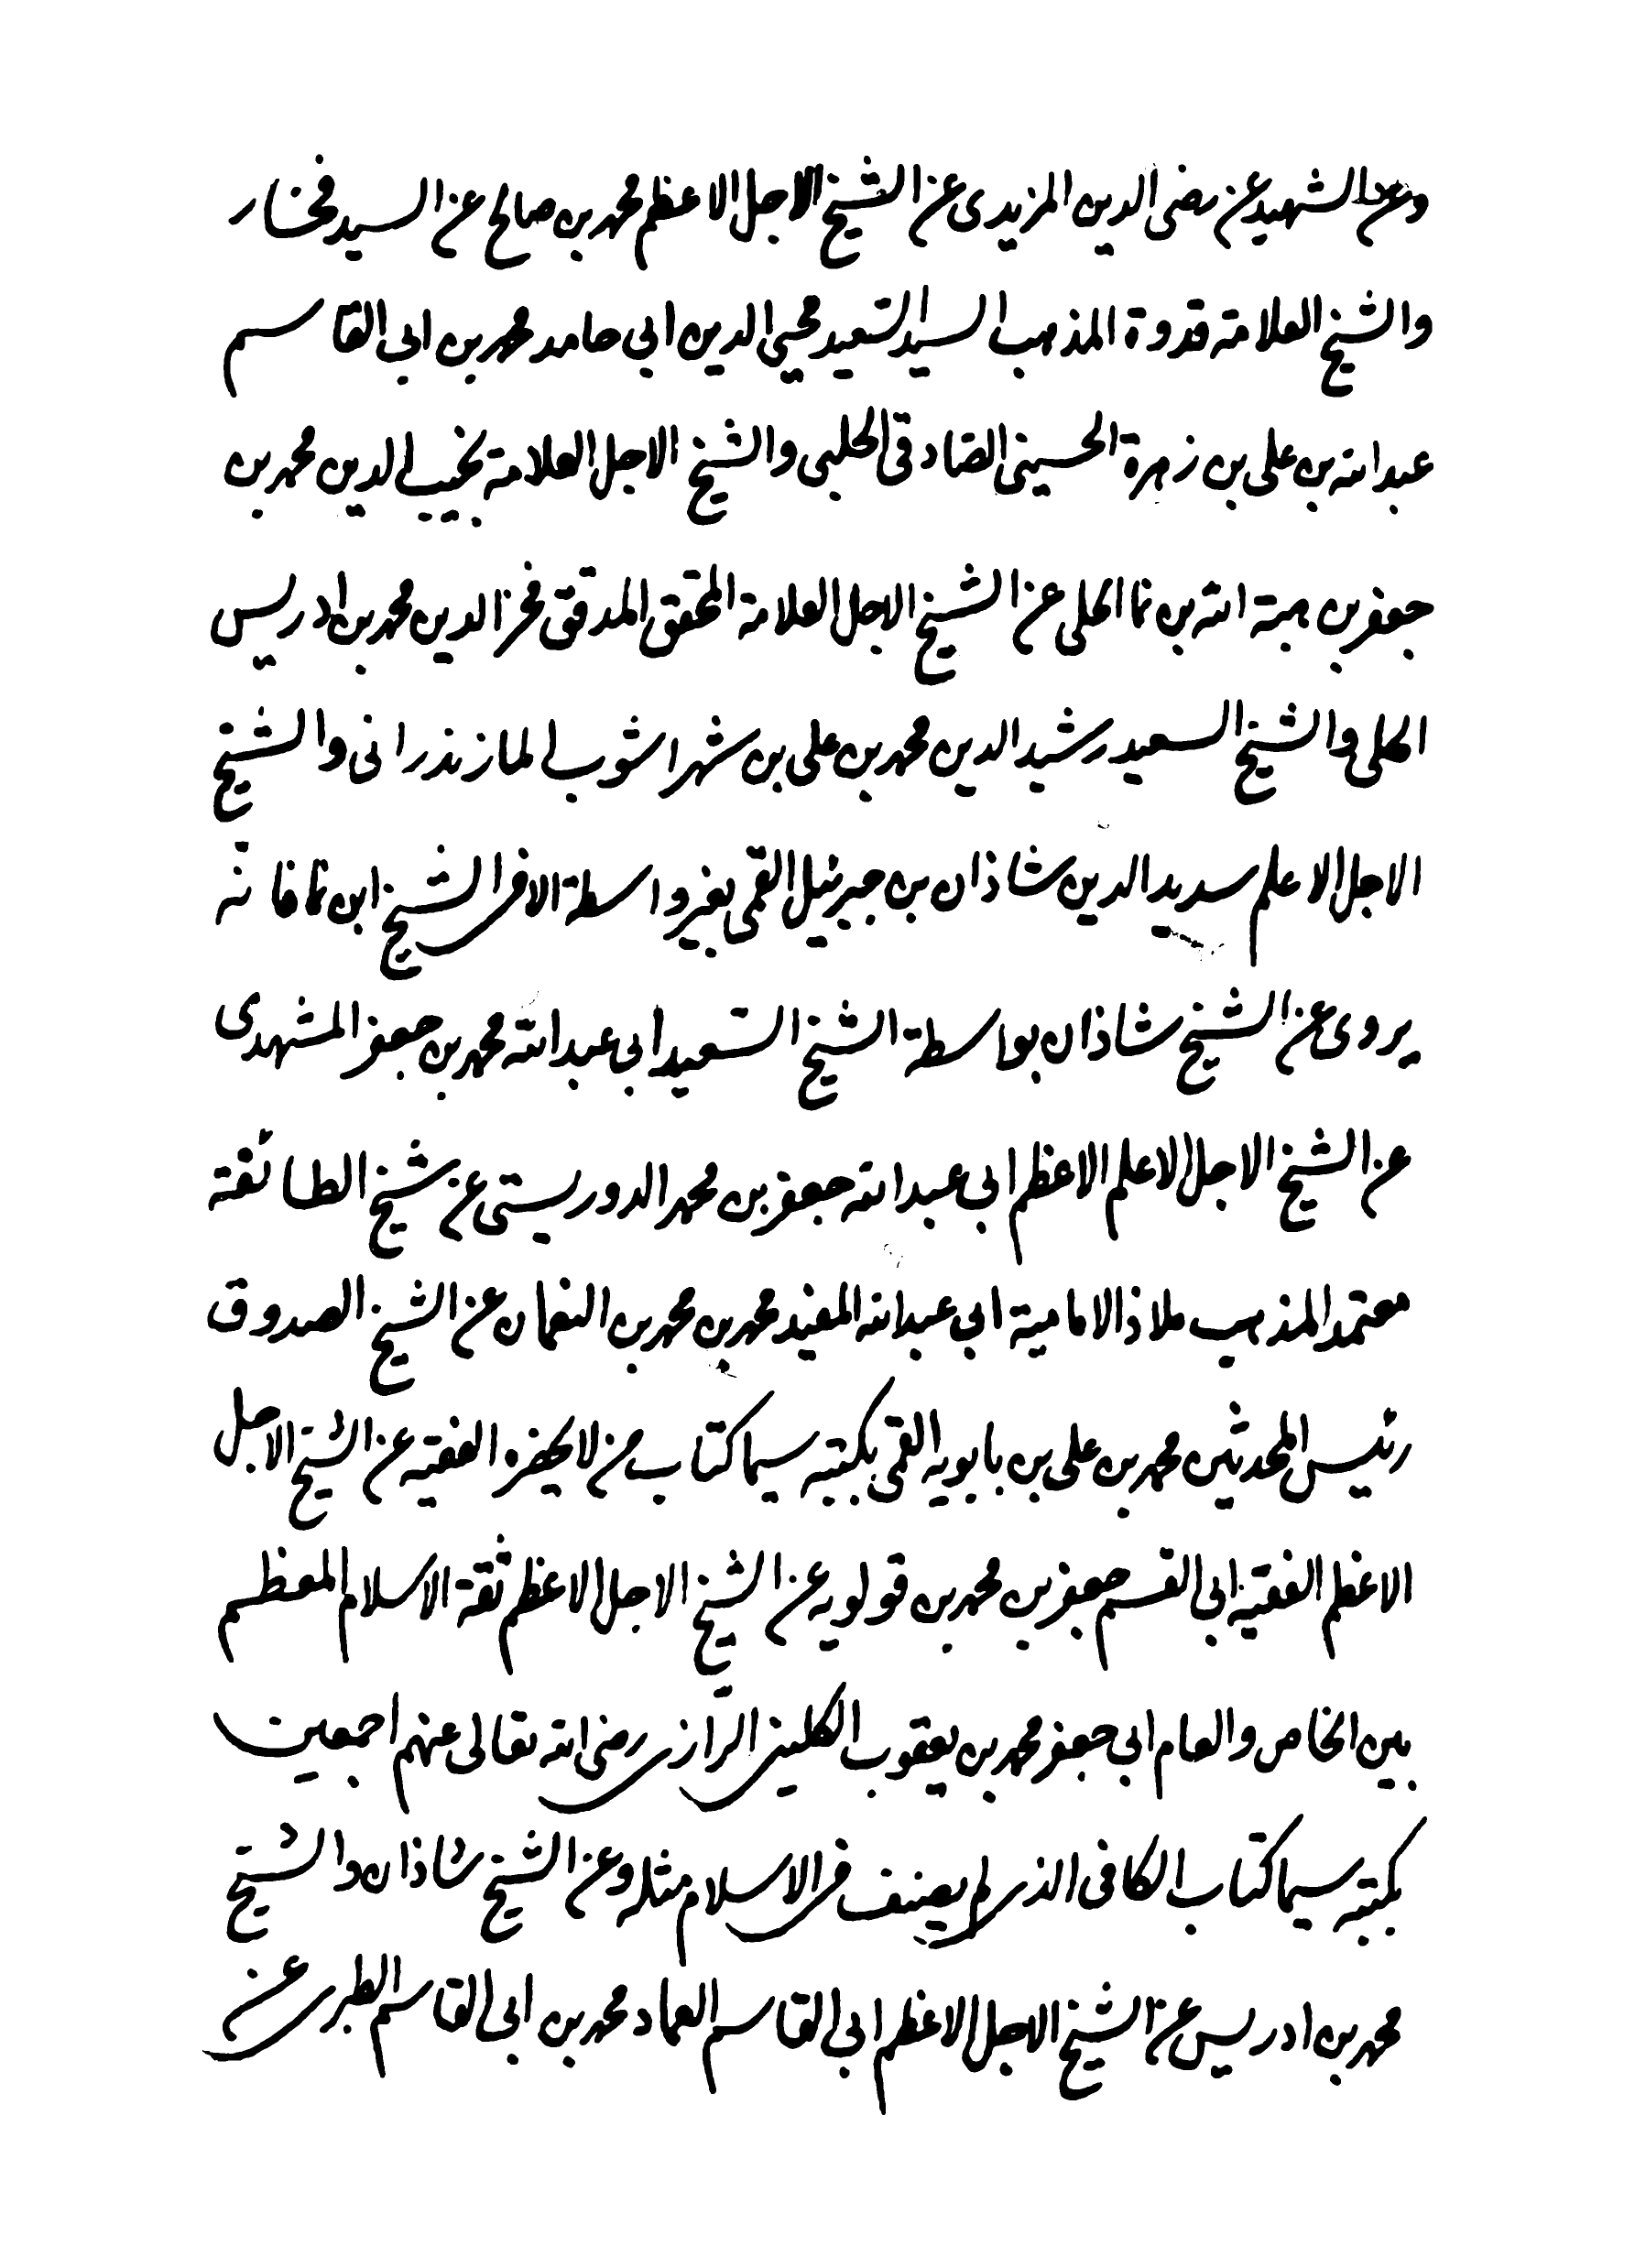 وعن الشهيد عن رضى الدين المزيدى عن الشيخ الاجل الاعظم محمد بن صالح عن السيد فخار
والشيخ العلامة قدوة المذهب السيد السعيد محيي الدين ابي حامد محمد بن ابي القاسم
عبد الله بن على بن زهرة الحسينى الصادقى الحلبى والشيخ الاجل العلامة نجيب الدين محمد بن
جعفر بن هبة الله بن نما الحلى عن الشيخ الاجل العلامة المحقق المدقق فخر الدين محمد بن ادريس
الحلى والشيخ السعيد رشيد الدين محمد بن على بن شهراشوب المازندرانى والشيخ
الاجل الاعلم سديد الدين شاذان بن جبرئيل القمى بغير واسطة الا فى الشيخ ابن نما فانه
يروى عن الشيخ شاذان بواسطة الشيخ السعيد ابى عبد الله محمد بن جعفر المشهدى
عن الشيخ الاجل الاعلم الاعظم ابي عبد الله جعفر بن محمد الدوريستى عن شيخ الطائفة
معتمد المذهب ملاذ الامامية ابي عبد الله المفيد محمد بن محمد بن النعمان عن الشيخ الصدوق
رئيس المحدثين محمد بن على بن بابويه القمى بكتبه سيما كتاب من لا يحضره الفقيه عن الشيخ الاجل
الاعظم الفقيه ابى القسم جعفر بن محمد بن قولويه عن الشيخ الاجل الاعظم ثقة الاسلام المعظم
بين الخاص والعام ابي جعفر محمد بن يعقوب الكلينى الرازى رضى الله تعالى عنهم اجمعين
بكتبه سيما كتاب الكافى الذى لم يصنف فى الاسلام مثله وعن الشيخ شاذان والشيخ
محمد بن ادريس عن الشيخ الاجل الاعظم ابي القاسم العماد محمد بن ابى القاسم الطبرى عن